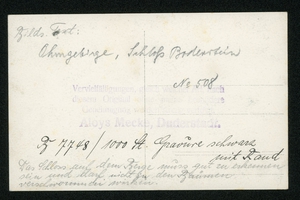 Bilds. Text:
Ohmgebirge, Schloß Bodenstein
No 508
Vervielfältigungen
dieses Original
Aloys Mecke, Duderstadt.
7748 / 1000 St. Gravüre schwarz
mit Rand
Das Schloss auf dem Berge muss gut zu erkennen
sein und darf nicht in den Bäumen
verschwommen wirken.